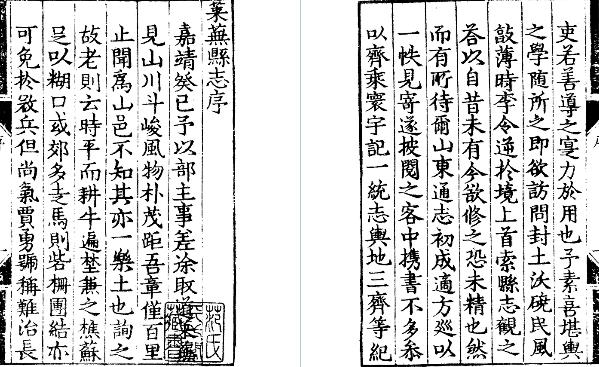 萊蕪縣志序
嘉靖癸巳予以部主事差涂取道
見山川斗峻風物朴茂距吾章僅百里
止聞為山邑不知其亦一樂土也詢之
故老則云時平而耕牛遍埜蕪之樵蘇
足以糊口或郊多走馬則砦柵團結亦
可免於殺兵但尚氣賈勇號稱難治長
吏若善導之寔力於用也予素喜堪輿
之學隨所之即欲訪問封土沃磽民風
敲薄時李令迎於境上首索縣志觀之
答以自昔未有今欲修之恐未精也然
而有所待爾山東通志初成適方巡以
一帙見寄遂披閱之客中携書不多叅
以齊乘寰宇記一統志輿地三齊等紀